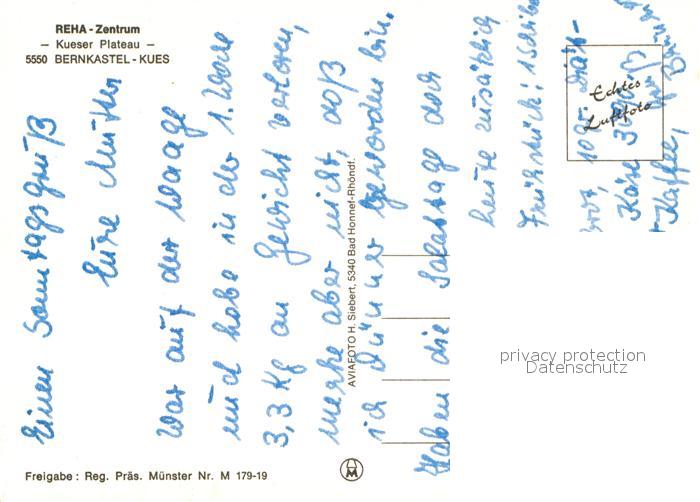 REHA - Zentrum
– Kueser Plateau –
5550 BERNKASTEL - KUES
Einen Sonntagsgruß
Eure Mutter
War auf der Waage
und habe in der 1. Woche
3,3 Kg an Gewicht verloren,
merke aber nicht, daß
ich dünner geworden bin.
Haben die Salattage doch
heute zusätzlich
Frühstück: 1 Scheibe
brot, 10 gr. Diät-
Käse
Kaffee,
Echtes
Luftfoto
AVIAFOTO H. Siebert, 5340 Bad Honnef-Rhöndf.
privacy protection
Datenschutz
Freigabe : Reg. Präs. Münster Nr. M 179-19